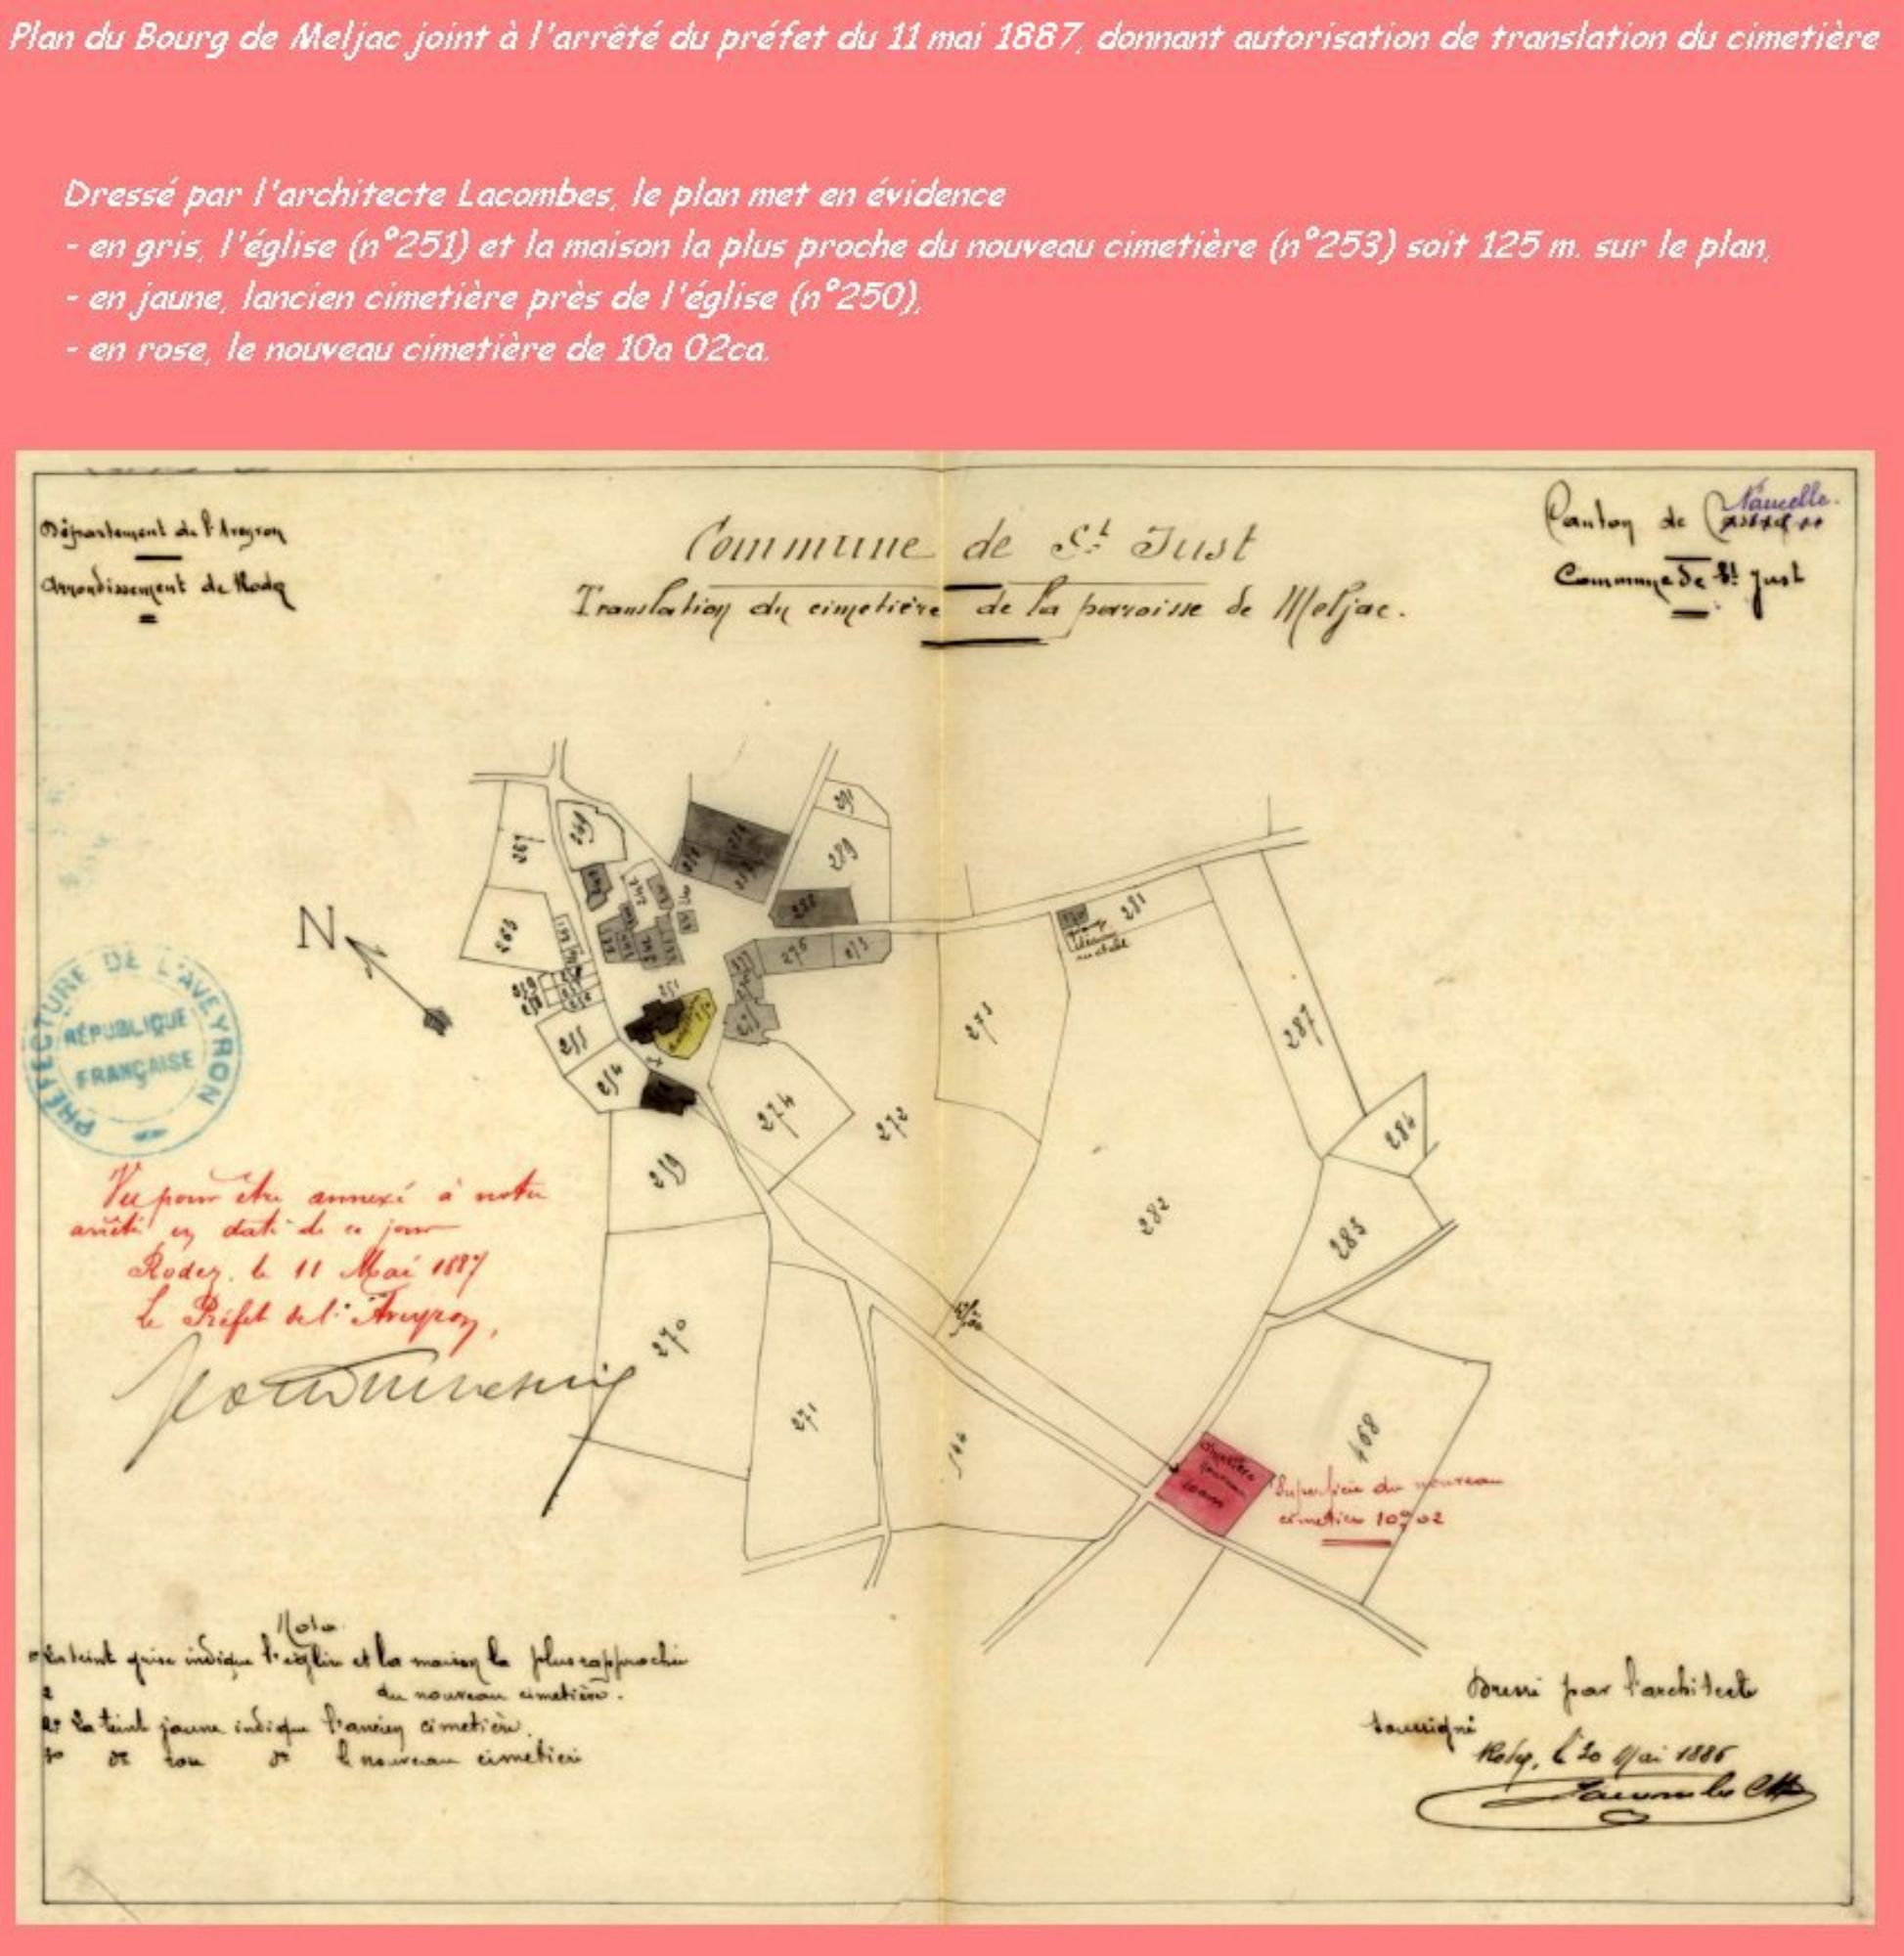 Plan du Bourg de Meljac joint à l'arrêté du préfet du 11 mai 1887, donnant autorisation de translation du cimetière
Dressé par l'architecte Lacombes, le plan met en évidence
- en gris, l'église (n°251) et la maison la plus proche du nouveau cimetière (n°253) soit 125 m. sur le plan,
- en jaune, lancien cimetière près de l'église (n°250),
- en rose, le nouveau cimetière de 10a 02ca.
Département de l'Aveyron
Arrondissement de Rodez
Commune de St Just
Translation du cimetière de la paroisse de Meljac.
Canton de Naucelle.
Commune de St Just
N
267
249
265
291
289
288
276
275
281
251
255
254
274
272
273
287
284
283
282
259
270
271
468
PRÉFECTURE DE L'AVEYRON
RÉPUBLIQUE
FRANÇAISE
Vu pour être annexé à notre
arrêté en date de ce jour
Rodez, le 11 Mai 1887
Le Préfet de l'Aveyron,
Cimetière
nouveau
Superficie du nouveau
cimetière 10a 02
Nota
La teinte grise indique l'église et la maison la plus rapprochée
du nouveau cimetière.
2° La teinte jaune indique l'ancien cimetière.
3° do rose do le nouveau cimetière
Dressé par l'architecte
soussigné
Rodez, le 20 Mai 1886
Lacombes